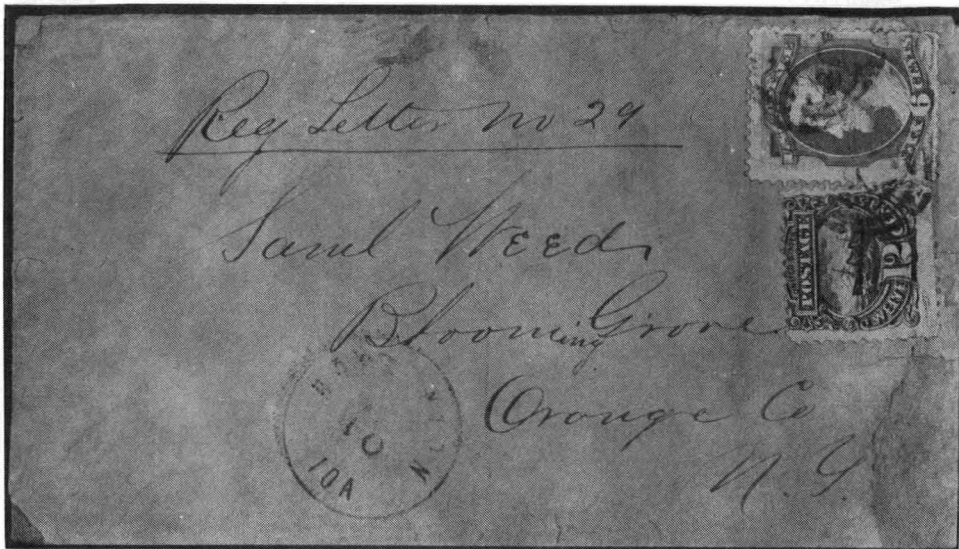 Reg Letter no 29
Saml Weed
Blooming Grove
Orange Co
N. Y.
POSTAGE
12
IOA